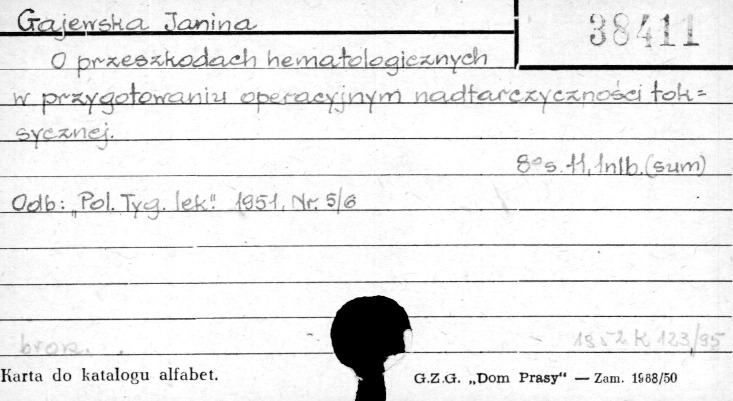 Gajewska Janina
38411
O przeszkodach hematologicznych
w przygotowaniu operacyjnym nadtarczyczności tok=
sycznej.
8° s. 11, 1nlb. (sum)
Odb: „Pol. Tyg. lek." 1951, Nr. 5/6
brosz.
1952 K 123/95
Karta do katalogu alfabet.
G.Z.G. „Dom Prasy" — Zam. 1988/50